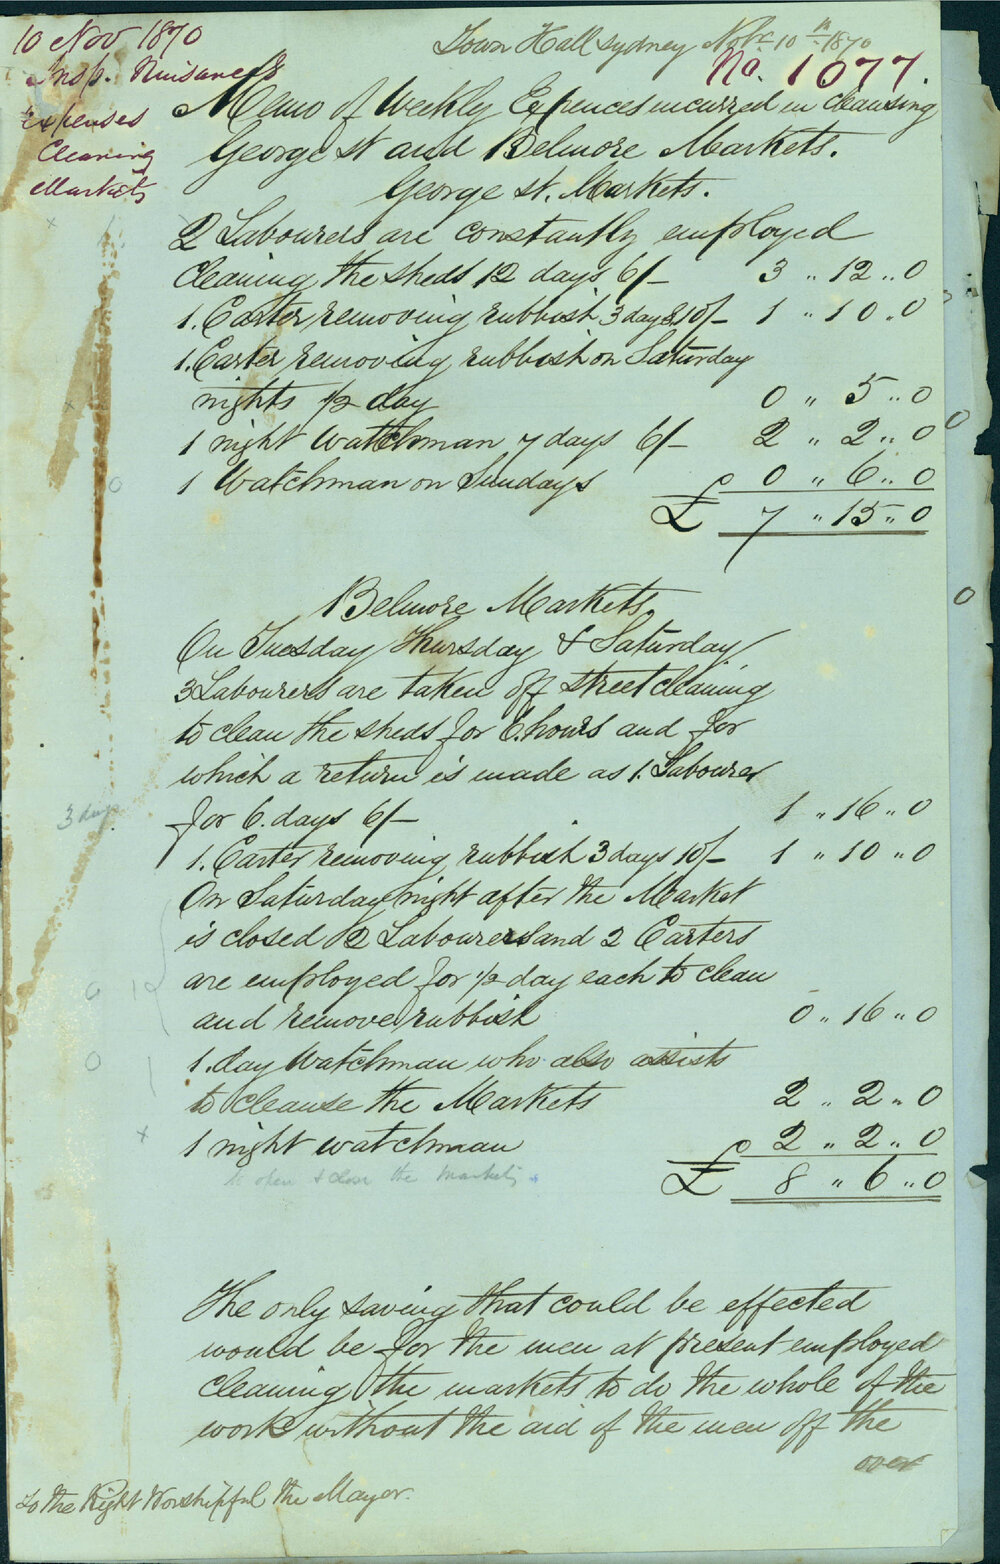 10 Nov 1870
Insp. Nuisances
Expenses
Cleaning
Markets
Town Hall Sydney Nobr 10th 1870
No. 1077.
Memo of Weekly Expences incurred in cleansing
George St and Belmore Markets.
George st. Markets.
2 Labourers are constantly employed
cleaning the sheds 12 days 6/- 3 " 12 " 0
1. Carter removing rubbish 3 days 10/- 1 " 10 " 0
1. Carter removing rubbish on Saturday
nights 1/2 day 0 " 5 " 0
1 night Watchman 7 days 6/- 2 " 2 " 0
1 Watchman on Sundays 0 " 6 " 0
£ 7 " 15 " 0
Belmore Markets.
On Tuesday Thursday & Saturday
3 Labourers are taken off street cleaning
to clean the sheds for 6. hours and for
which a return is made as 1. Labourer
3 days
for 6. days 6/- 1 " 16 " 0
1. Carter removing rubbish 3 days 10/- 1 " 10 " 0
On Saturday night after the Market
is closed 2 Labourers and 2 Carters
are employed for 1/2 day each to clean
and remove rubbish 0 " 16 " 0
1. day Watchman who also assists
to cleanse the Markets 2 " 2 " 0
1 night watchman 2 " 2 " 0
to open & close the markets.
£ 8 " 6 " 0
The only saving that could be effected
would be for the men at present employed
cleaning the markets to do the whole of the
work without the aid of the men off the
over
To the Right Worshipful the Mayor.